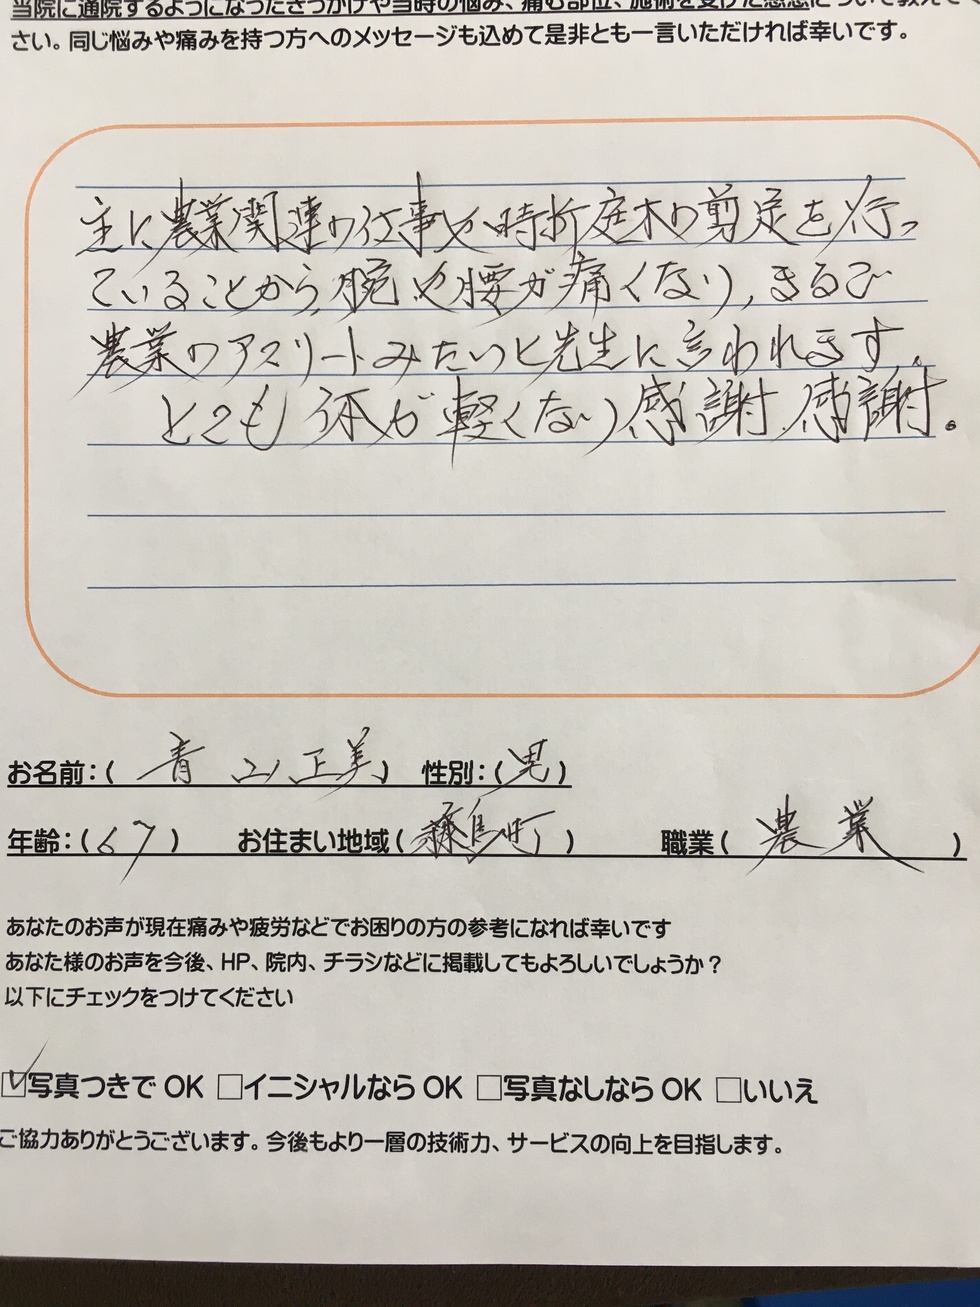 当院に通院するようになったきっかけや当時の悩み、痛む部位、施術を受けた感想について教えてく
さい。同じ悩みや痛みを持つ方へのメッセージも込めて是非とも一言いただければ幸いです。
主に農業関連の仕事や時折庭木の剪定を行っ
ていることから、腕や腰が痛くなり、まるで
農業のアスリートみたいと先生に言われます。
とても体が軽くなり感謝、感謝。
お名前:(青山正美) 性別:(男)
年齢:(67) お住まい地域(練馬町) 職業(農業)
あなたのお声が現在痛みや疲労などでお困りの方の参考になれば幸いです
あなた様のお声を今後、HP、院内、チラシなどに掲載してもよろしいでしょうか?
以下にチェックをつけてください
☑写真つきでOK □イニシャルならOK □写真なしならOK □いいえ
ご協力ありがとうございます。今後もより一層の技術力、サービスの向上を目指します。